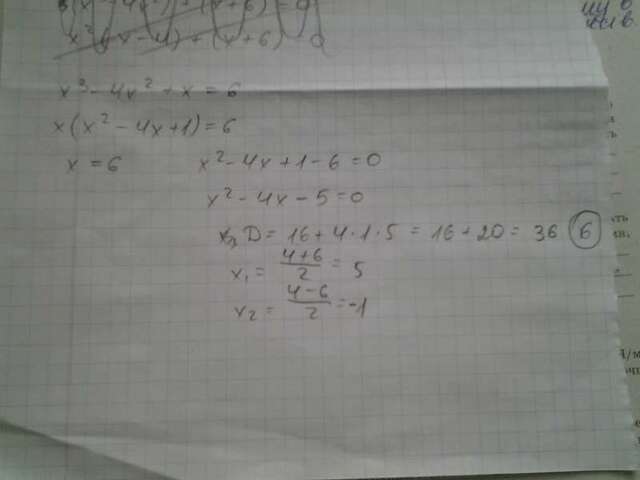 x²(x-4)+(x+6)=0
x³-4x²+x=6
x(x²-4x+1)=6
x=6 x²-4x+1-6=0
x²-4x-5=0
D=16+4·1·5=16+20=36 6
x₁= (4+6)/2 = 5
x₂= (4-6)/2 =-1